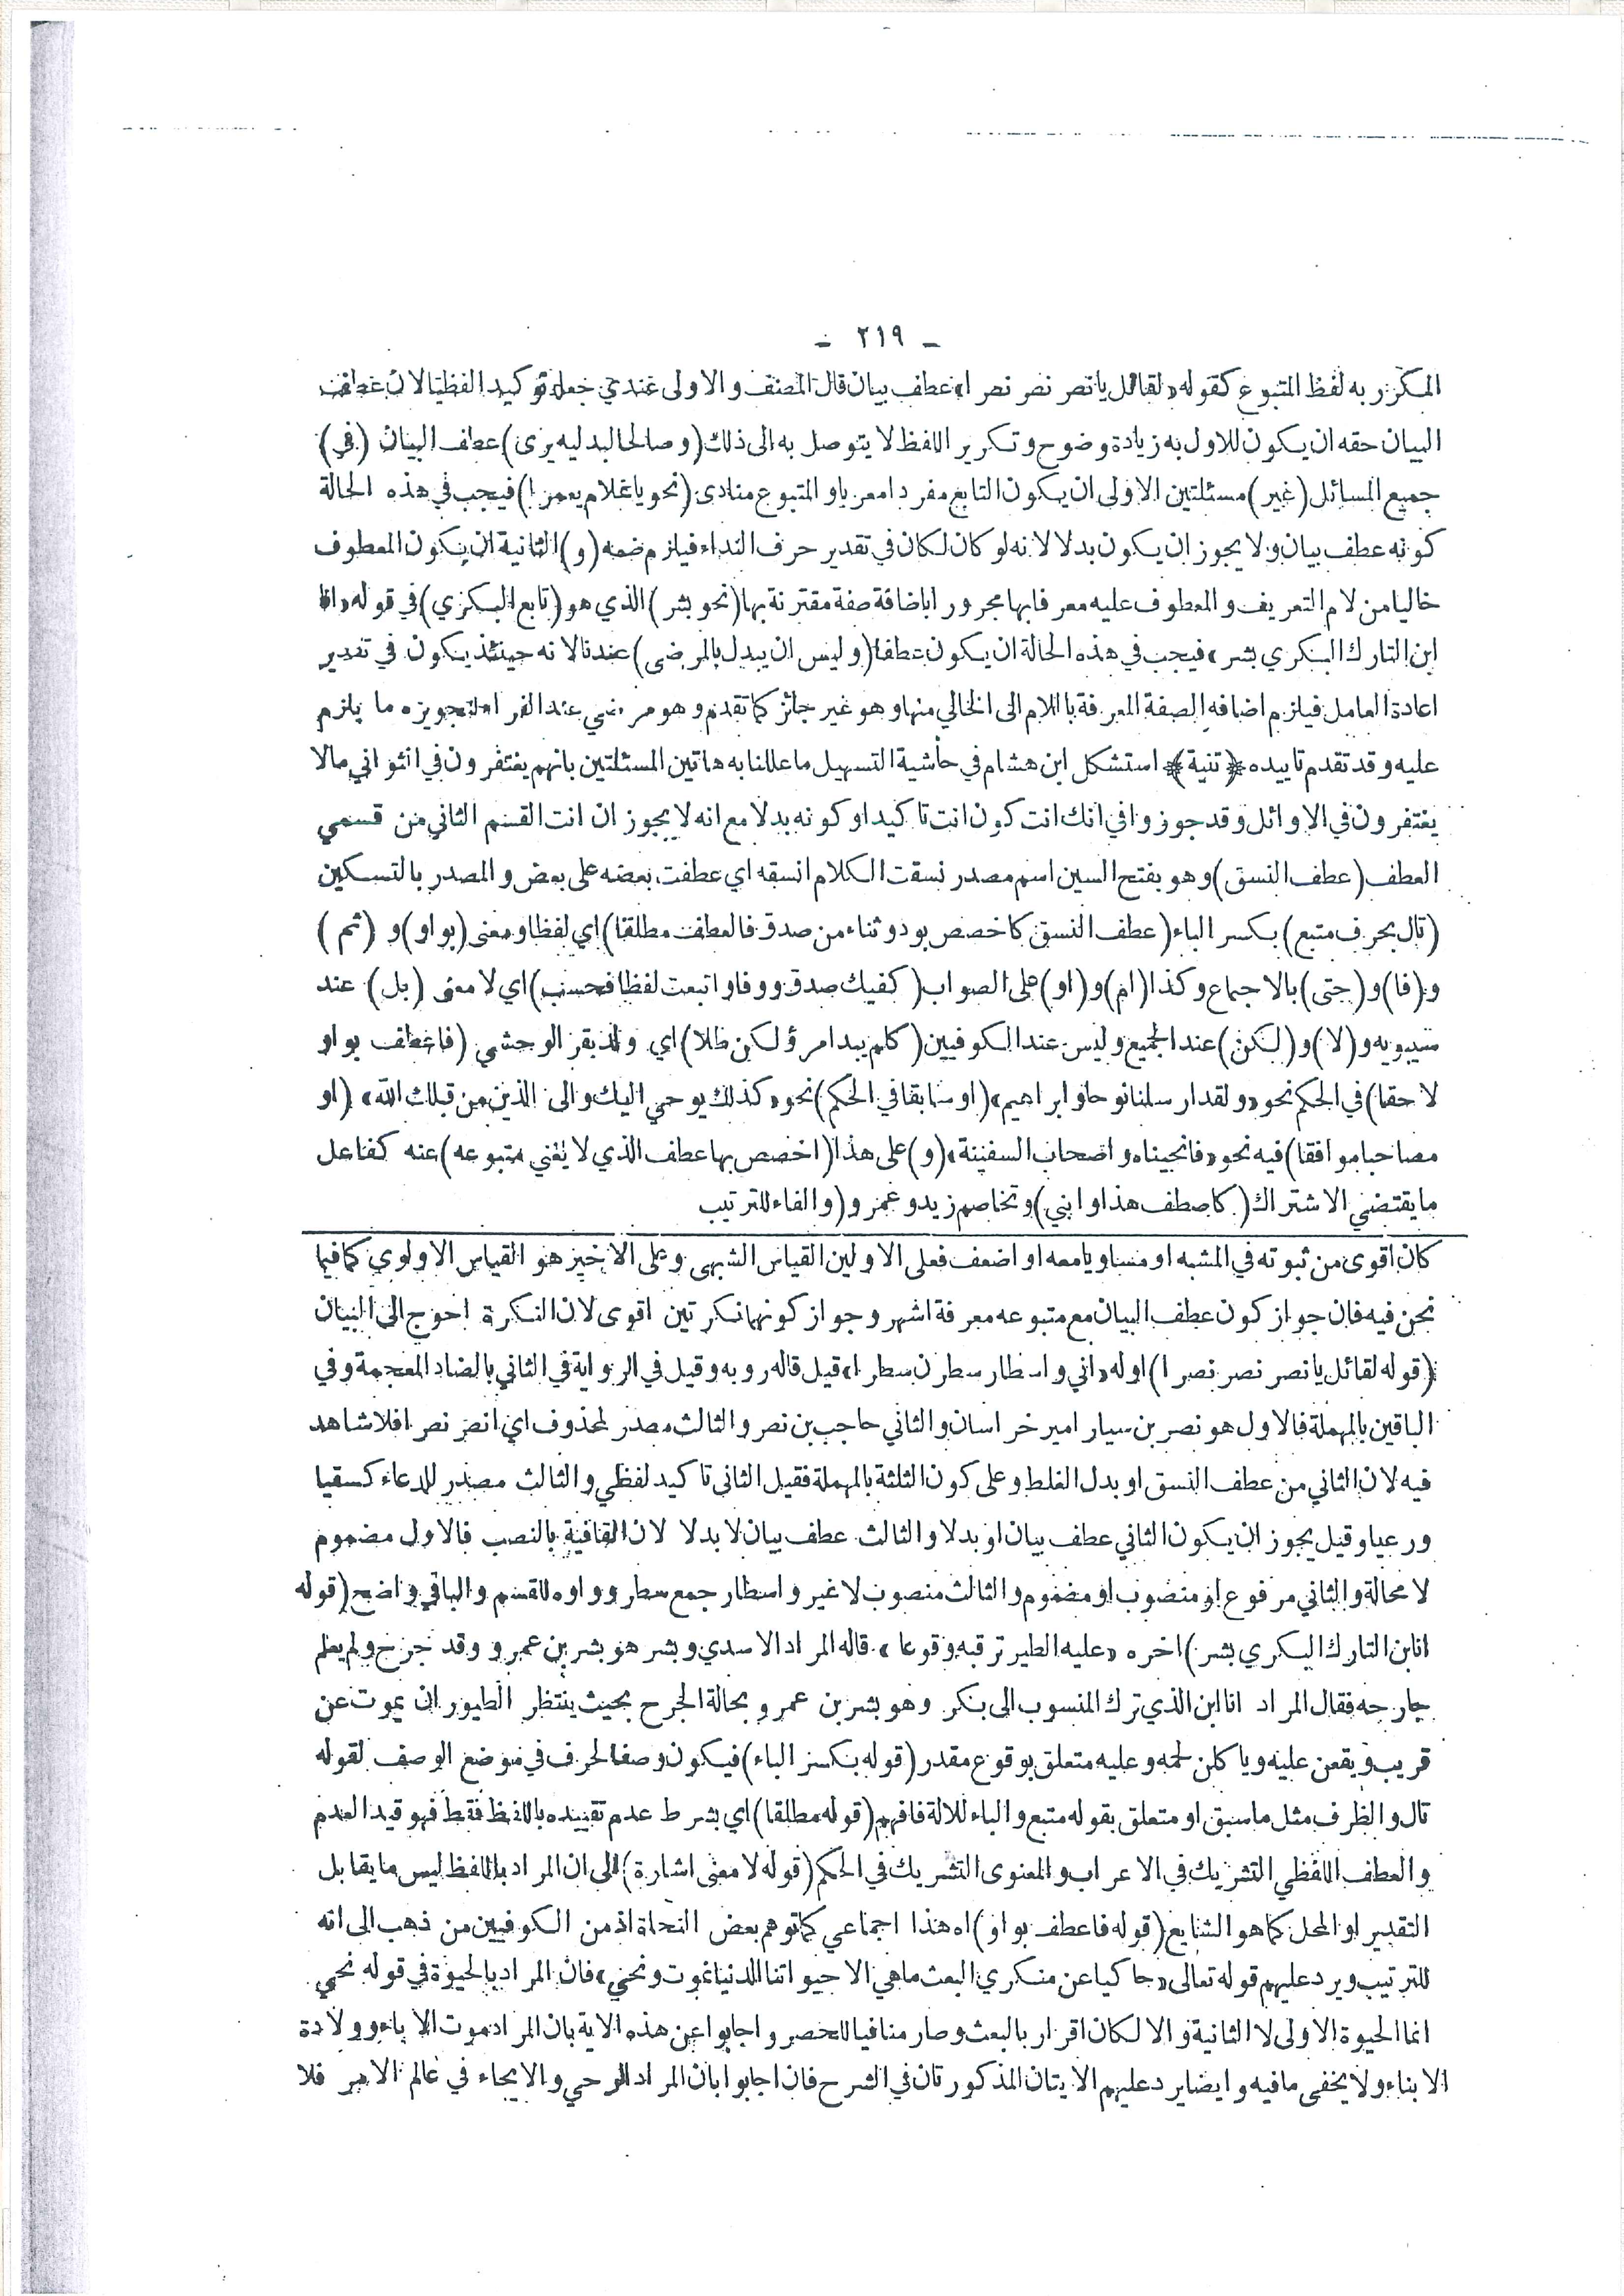 - ٢١٩ -
المكرر به لفظ المتبوع كقوله «لقائل يا نصر نصر نصرا» عطف بيان قال المصنف والاولى عندي جعله توكيدا لفظيا لان عطف
البيان حقه ان يكون للاول به زيادة وضوح وتكرير اللفظ لا يتوصل به الى ذلك (وصالحا لبدليه يرى) عطف البيان (في)
جميع المسائل (غير) مسئلتين الاولى ان يكون التابع مفردا معربا والمتبوع منادى (نحو يا غلام يعمرا) فيجب في هذه الحالة
كونه عطف بيان ولا يجوز ان يكون بدلا لانه لو كان لكان في تقدير حرف النداء فيلزم ضمه (و) الثانية ان يكون المعطوف
خاليا من لام التعريف والمعطوف عليه معرفا بها مجرورا باضافة صفة مقترنة بها (نحو بشر) الذي هو (تابع البكري) في قوله «انا
ابن التارك البكري بشر» فيجب في هذه الحالة ان يكون عطفا (وليس ان يبدل بالمرضى) عندنا لانه حينئذ يكون في تقدير
اعادة العامل فيلزم اضافه الصفة المعرفة باللام الى الخالي منها وهو غير جائز كما تقدم وهو مرضي عند الفراء لتجويزه ما يلزم
عليه وقد تقدم تاييده ﴿تنية﴾ استشكل ابن هشام في حاشية التسهيل ما عللنا به هاتين المسئلتين بانهم يغتفرون في الثواني ما لا
يغتفرون في الاوائل وقد جوزوا في انك انت كون انت تاكيدا وكونه بدلا مع انه لا يجوز ان انت القسم الثاني من قسمي
العطف (عطف النسق) وهو بفتح السين اسم مصدر نسقت الكلام انسقه اي عطفت بعضه على بعض والمصدر بالتسكين
(تال بحرف متبع) بكسر الباء (عطف النسق كاخصص بود وثناء من صدق فالعطف مطلقا) اي لفظا ومعنى (بواو) و (ثم)
و (فا) و (حتى) بالاجماع وكذا (ام) و (او) على الصواب (كفيك صدق ووفا واتبعت لفظا فحسب) اي لا معنى (بل) عند
سيبويه و (لا) و (لكن) عند الجميع وليس عند الكوفيين (كلم يبد امرؤ لكن طلا) اي ولد بقر الوحشي (فاعطف بواو
لاحقا) في الحكم نحو «ولقد ارسلنا نوحا وابراهيم» (او سابقا في الحكم) نحو «كذلك يوحي اليك والى الذين من قبلك الله» (او
مصاحبا موافقا) فيه نحو «فانجيناه واصحاب السفينة» (و) على هذا (اخصص بها عطف الذي لا يغني متبوعه) عنه كفاعل
ما يقتضي الاشتراك (كاصطف هذا وابني) وتخاصم زيد وعمرو (والفاء للترتيب
كان اقوى من ثبوته في المشبه او مساويا معه او اضعف فعلى الاولين القياس الشبهى وعلى الاخير هو القياس الاولوي كما فيما
نحن فيه فان جواز كون عطف البيان مع متبوعه معرفة اشهر وجواز كونهما نكرتين اقوى لان النكرة احوج الى البيان
(قوله لقائل يا نصر نصر نصرا) اوله «اني واسطار سطرن سطرا» قيل قاله روبه وقيل في الرواية في الثاني بالضاد المعجمة وفي
الباقين بالمهملة فالاول هو نصر بن سيار امير خراسان والثاني حاجب بن نصر والثالث مصدر لمحذوف اي انصر نصرا فلا شاهد
فيه لان الثاني من عطف النسق او بدل الغلط وعلى كون الثلثة بالمهملة فقيل الثاني تاكيد لفظي والثالث مصدر للدعاء كسقيا
ورعيا وقيل يجوز ان يكون الثاني عطف بيان او بدلا والثالث عطف بيان لا بدلا لان القافية بالنصب فالاول مضموم
لا محالة والثاني مرفوع او منصوب او مضموم والثالث منصوب لا غير واسطار جمع سطر وواوه للقسم والباقي واضح (قوله
انا ابن التارك البكري بشر) اخره «عليه الطير ترقبه وقوعا» قاله المراد الاسدي وبشر هو بشر بن عمرو وقد جرح ولم يعلم
جارحه فقال المراد انا ابن الذي ترك المنسوب الى بكر وهو بشر بن عمرو بحالة الجرح بحيث ينتظر الطيور ان يموت عن
قريب ويقعن عليه وياكلن لحمه وعليه متعلق بوقوع مقدر (قوله بكسر الباء) فيكون وصفا لحرف في موضع الوصف لقوله
تال والظرف مثل ما سبق او متعلق بقوله متبع والباء للالة فافهم (قوله مطلقا) اي بشرط عدم تقييده باللفظ فقط فهو قيد العدم
والعطف اللفظي التشريك في الاعراب والمعنوى التشريك في الحكم (قوله لا معنى اشارة) الى ان المراد باللفظ ليس ما يقابل
التقدير او المحل كما هو الشايع (قوله فاعطف بواو) اه هذا اجماعي كما توهم بعض النحاة اذ من الكوفيين من ذهب الى انه
للترتيب ويرد عليهم قوله تعالى «حاكيا عن منكري البعث ما هي الا حيواتنا الدنيا نموت ونحيي» فان المراد بالحيوة في قوله نحيي
انما الحيوة الاولى لا الثانية والا لكان اقرار بالبعث وصار منافيا للحصر واجابوا عن هذه الاية بان المراد موت الاباء وولادة
الابناء ولا يخفى ما فيه وايضا يرد عليهم الايتان المذكورتان في الشرح فان اجابوا بان المراد الوحي والايحاء في عالم الامر فلا